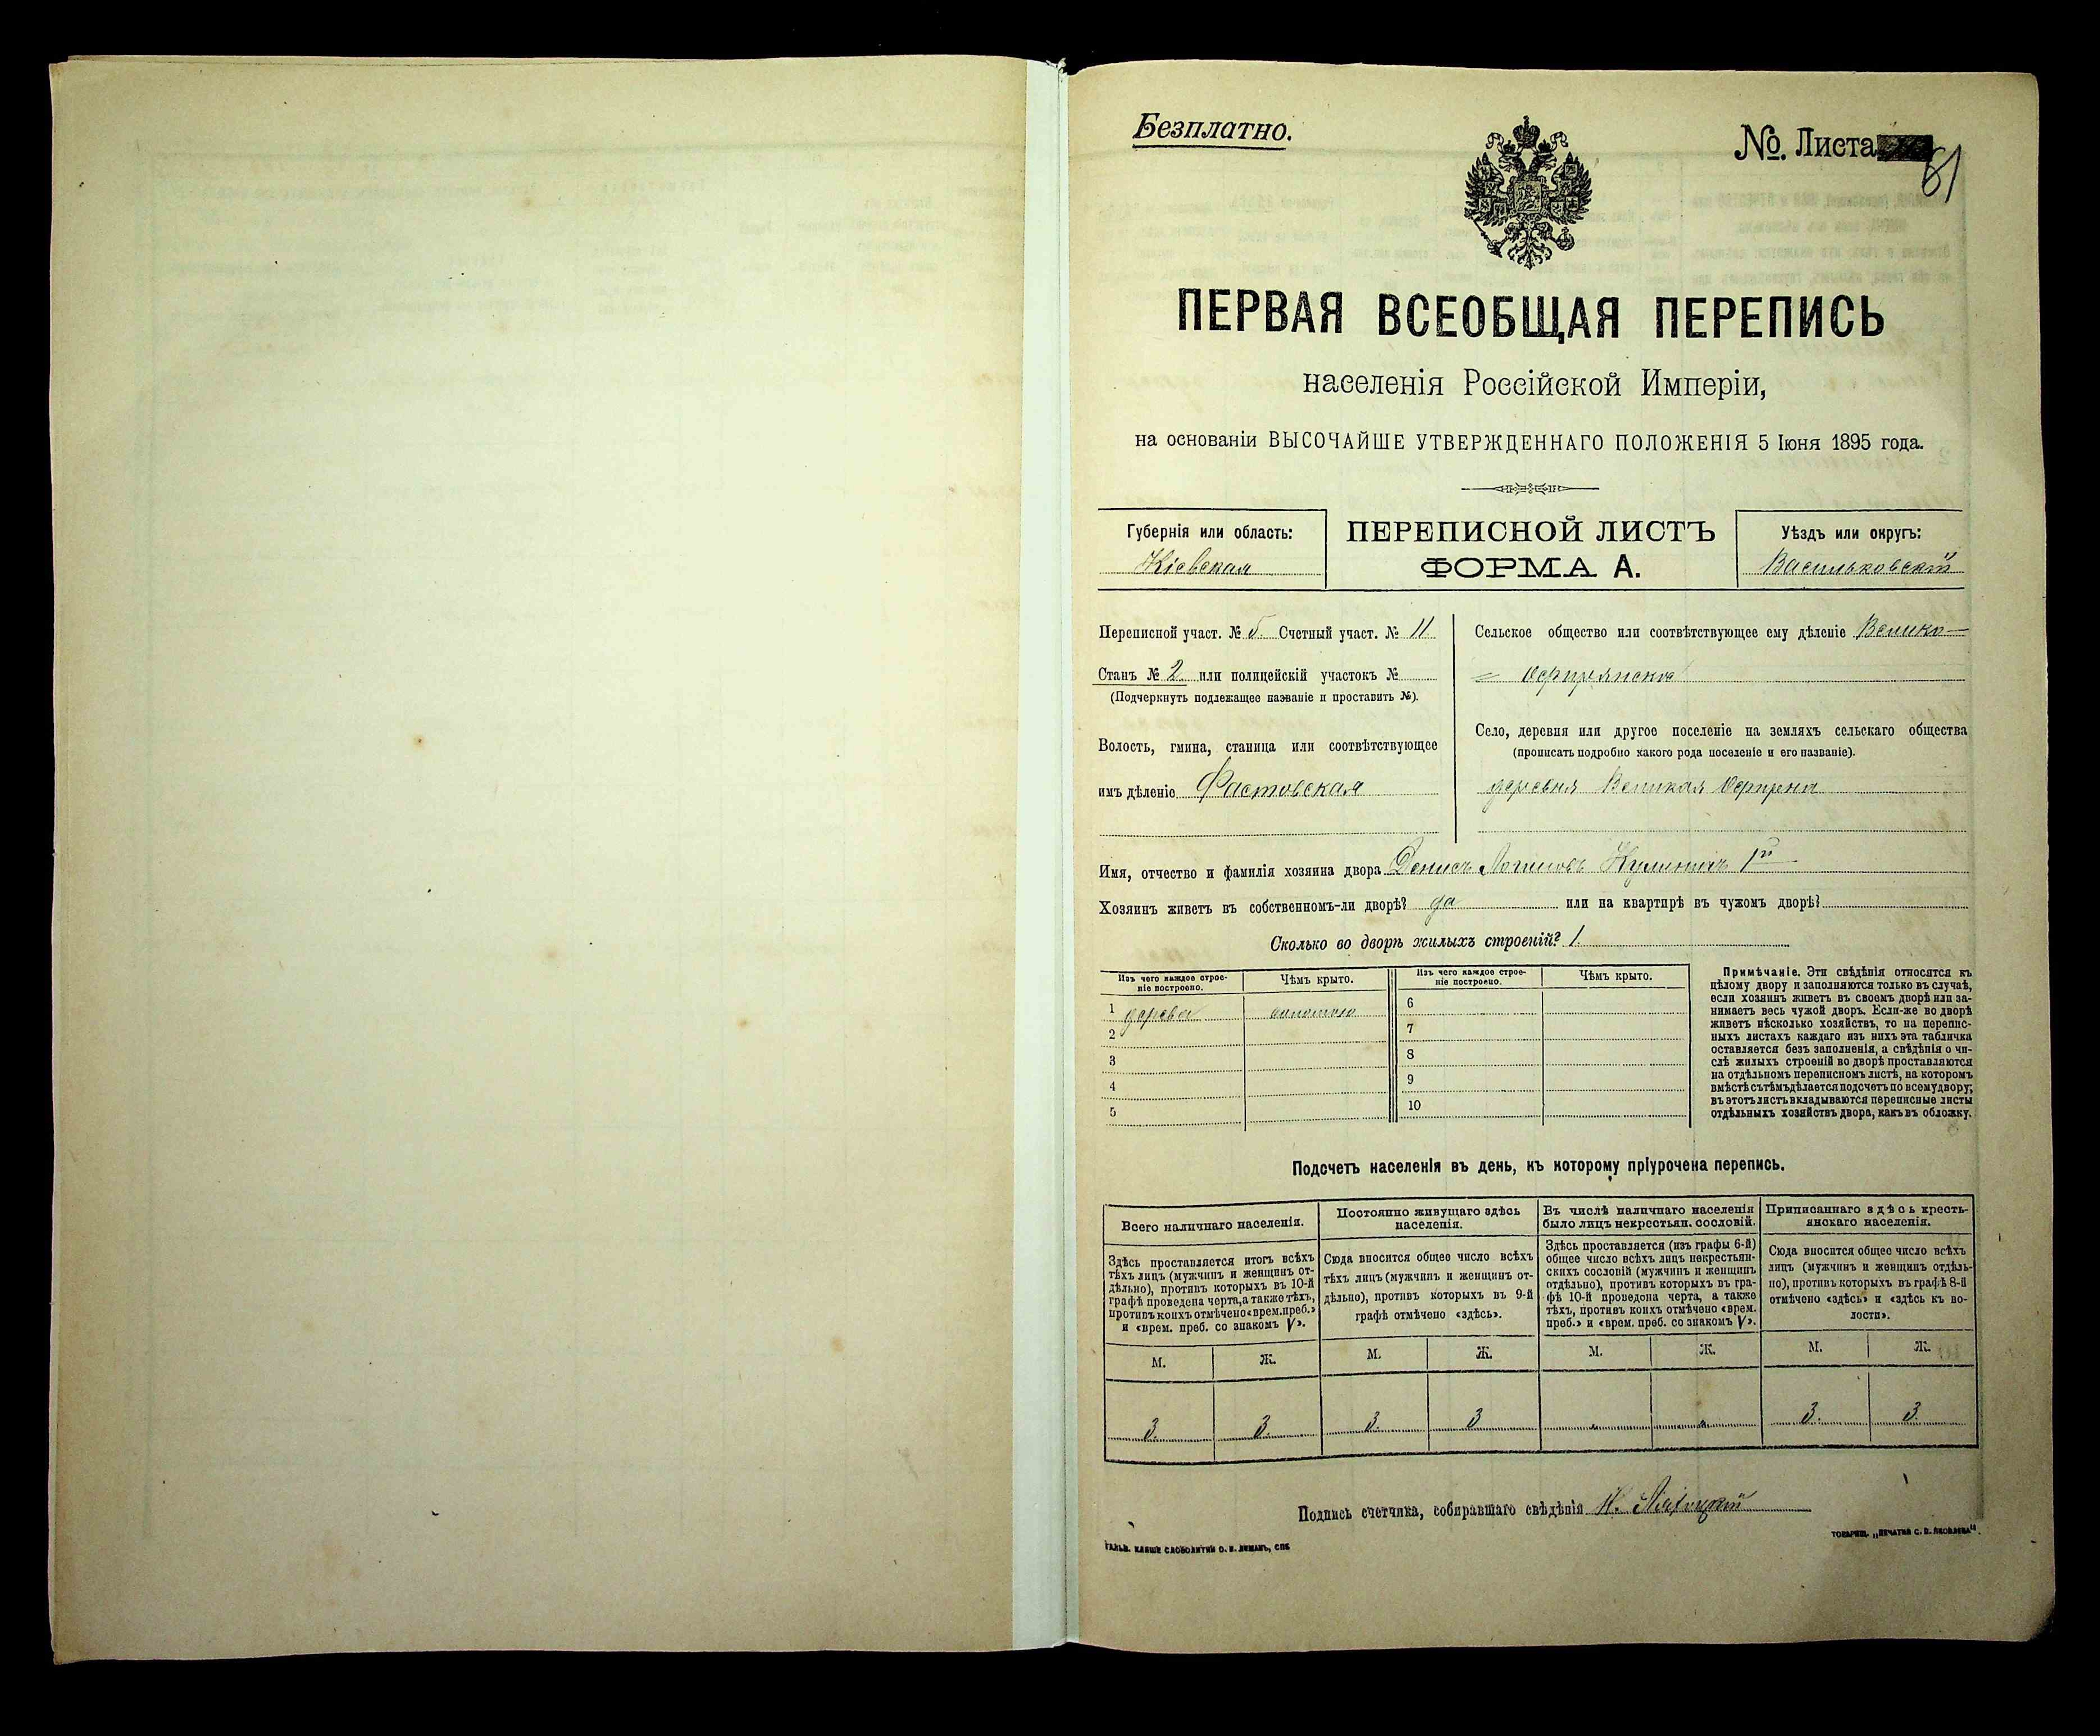 Безплатно.
№. Листа 81
ПЕРВАЯ ВСЕОБЩАЯ ПЕРЕПИСЬ
населенія Россійской Имперіи,
на основаніи ВЫСОЧАЙШЕ УТВЕРЖДЕННАГО ПОЛОЖЕНІЯ 5 Іюня 1895 года.
Губернія или область:
Кіевская
ПЕРЕПИСНОЙ ЛИСТЪ
ФОРМА А.
Уѣздъ или округъ:
Васильковскій
Переписной участ. № 5. Счетный участ. № 11
Станъ № 2 или полицейскій участокъ №
(Подчеркнуть подлежащее названіе и проставить №).
Волость, гмина, станица или соотвѣтствующее
имъ дѣленіе Фастовская
Сельское общество или соотвѣтствующее ему дѣленіе Велико-
Село, деревня или другое поселеніе на земляхъ сельскаго общества
(прописать подробно какого рода поселеніе и его названіе).
деревня Великая
Имя, отчество и фамилія хозяина двора Денисъ Логиновъ
Хозяинъ живетъ въ собственномъ-ли дворѣ? да или на квартирѣ въ чужомъ дворѣ?
Сколько во дворѣ жилыхъ строеній? 1.
Изъ чего каждое строе-
ніе построено.
Чѣмъ крыто.
Изъ чего каждое строе-
ніе построено.
Чѣмъ крыто.
1 дерева соломою
2
3
4
5
6
7
8
9
10
Примѣчаніе. Эти свѣдѣнія относятся къ
цѣлому двору и заполняются только въ случаѣ,
если хозяинъ живетъ въ своемъ дворѣ или за-
нимаетъ весь чужой дворъ. Если-же во дворѣ
живетъ нѣсколько хозяйствъ, то на перепис-
ныхъ листахъ каждаго изъ нихъ эта табличка
оставляется безъ заполненія, а свѣдѣнія о чи-
слѣ жилыхъ строеній во дворѣ проставляются
на отдѣльномъ переписномъ листѣ, на которомъ
вмѣстѣ съ тѣмъ дѣлается подсчетъ по всему двору;
въ этотъ листъ вкладываются переписные листы
отдѣльныхъ хозяйствъ двора, какъ въ обложку.
Подсчетъ населенія въ день, къ которому пріурочена перепись.
Всего наличнаго населенія.
Здѣсь проставляется итогъ всѣхъ
тѣхъ лицъ (мужчинъ и женщинъ от-
дѣльно), противъ которыхъ въ 10-й
графѣ проведена черта, а также тѣхъ,
противъ коихъ отмѣчено «врем. преб.»
и «врем. преб. со знакомъ V».
М. Ж.
3. 3.
Постоянно живущаго здѣсь
населенія.
Сюда вносится общее число всѣхъ
тѣхъ лицъ (мужчинъ и женщинъ от-
дѣльно), противъ которыхъ въ 9-й
графѣ отмѣчено «здѣсь».
М. Ж.
3. 3
Въ числѣ наличнаго населенія
было лицъ некрестьян. сословій.
Здѣсь проставляется (изъ графы 6-й)
общее число всѣхъ лицъ некрестьян-
скихъ сословій (мужчинъ и женщинъ
отдѣльно), противъ которыхъ въ гра-
фѣ 10-й проведена черта, а также
тѣхъ, противъ коихъ отмѣчено «врем.
преб.» и «врем. преб. со знакомъ V».
М. Ж.
" "
Приписаннаго здѣсь кресть-
янскаго населенія.
Сюда вносится общее число всѣхъ
лицъ (мужчинъ и женщинъ отдѣль-
но), противъ которыхъ въ графѣ 8-й
отмѣчено «здѣсь» и «здѣсь къ во-
лости».
М. Ж.
3. 3.
Подпись счетчика, собиравшаго свѣдѣнія
ГАЛЬВ. КЛИШЕ СЛОВОЛИТНИ О. И. ЛЕМАНЪ, СПБ
ТОВАРИЩ. „ПЕЧАТНЯ С. П. ЯКОВЛЕВА".